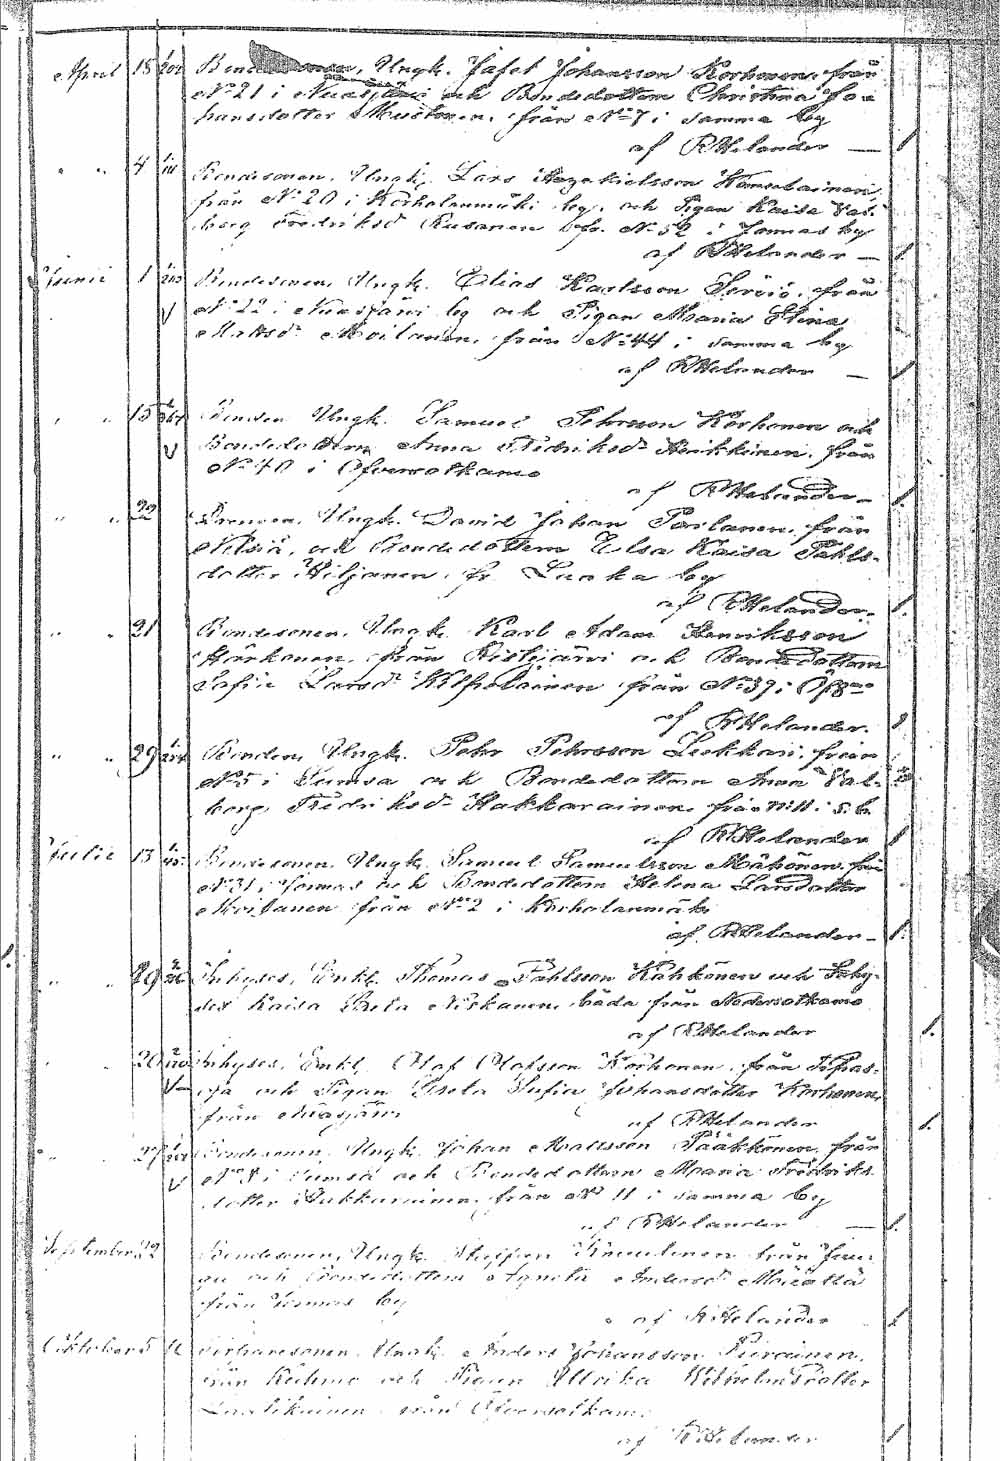 April 18 Ungk. Jafet Johansson Korhonen, från
No 21 i Nuasjärvi och Bondedottern Christina Jo-
hansdotter Mustonen, från No 7 i samma by
af RHelander — 1
" " 4 Bondesonen, Ungk. Lars
från No 20 i Korholanmäki by, och Pigan Kaisa Val-
borg Fredriksdr Rusanen fr. No 52 i Jormas by
af RHelander — 1
Junii 1 Bondesonen, Ungk. Elias Karlsson Serviö, från
V No 22 i Nuasjärvi by och Pigan Maria Stina
Mattsdr Moilanen, från No 44 i samma by
af RHelander — 1
" " 15 Bonden Ungk. Samuel Pehrsson Korhonen och
V Bondedottern Anna Fredriksdr Heikkinen, från
No 40 i Öfversotkamo
af RHelander — 1.
" " 22 Drengen, Ungk. David Johan Parlanen, från
Nilsiä, och Bondedottern Elsa Kaisa Påhls-
dotter Hiljanen, fr. Laaka by
af RHelander. 1.
" " 21 Bondesonen, Ungk. Karl Adam Henriksson
Härkönen, från Ristijärvi och Bondedottern
Sofia Larsdr Kilpeläinen från No 39 i
af RHelander.
" " 29 Bonden, Ungk. Pehr Pehrsson Leskkari, från
No 5 i Sumsa och Bondedottern Anna Val-
borg Fredriksdr Hakkarainen, från No 11 i s. b.
af RHelander 1
Julii 13 Bondesonen, Ungk. Samuel Samuelsson Mähönen, från
No 31 i Jormas och Bondedottern Helena Larsdotter
Moilanen från No 2 i Korholanmäki
af RHelander — 1.
" " 29 Inhyses, Enkl. Thomas Påhlsson Kähkönen och Inhy-
ses Kaisa Greta Niskanen, båda från Nedersotkamo
af RHelander 1.
" 20 Inhyses, Enkl. Olof Olofsson Korhonen, från Tipas-
V oja och Pigan Greta Sofia Johansdotter Korhonen,
från Nuasjärvi
af RHelander 1.
" " 27 Bondesonen, Ungk. Johan Mattsson Pääkkönen, från
V No 8 i Sumsa och Bondedottern Maria Fredriks-
dotter Hakkarainen, från No 11 i samma by
af RHelander — 1.
September 22 Bondesonen, Ungk. Staffan Kinnunen från
och Bondedottern Agneta Andersdr Määttä
från Jormas by
af RHelander 1
Oktober 5 Ungk. Anders Johansson Piirainen,
från Kuhmo och Pigan Ullrika Wilhelmsdotter
från Öfversotkamo
af RHelander 1